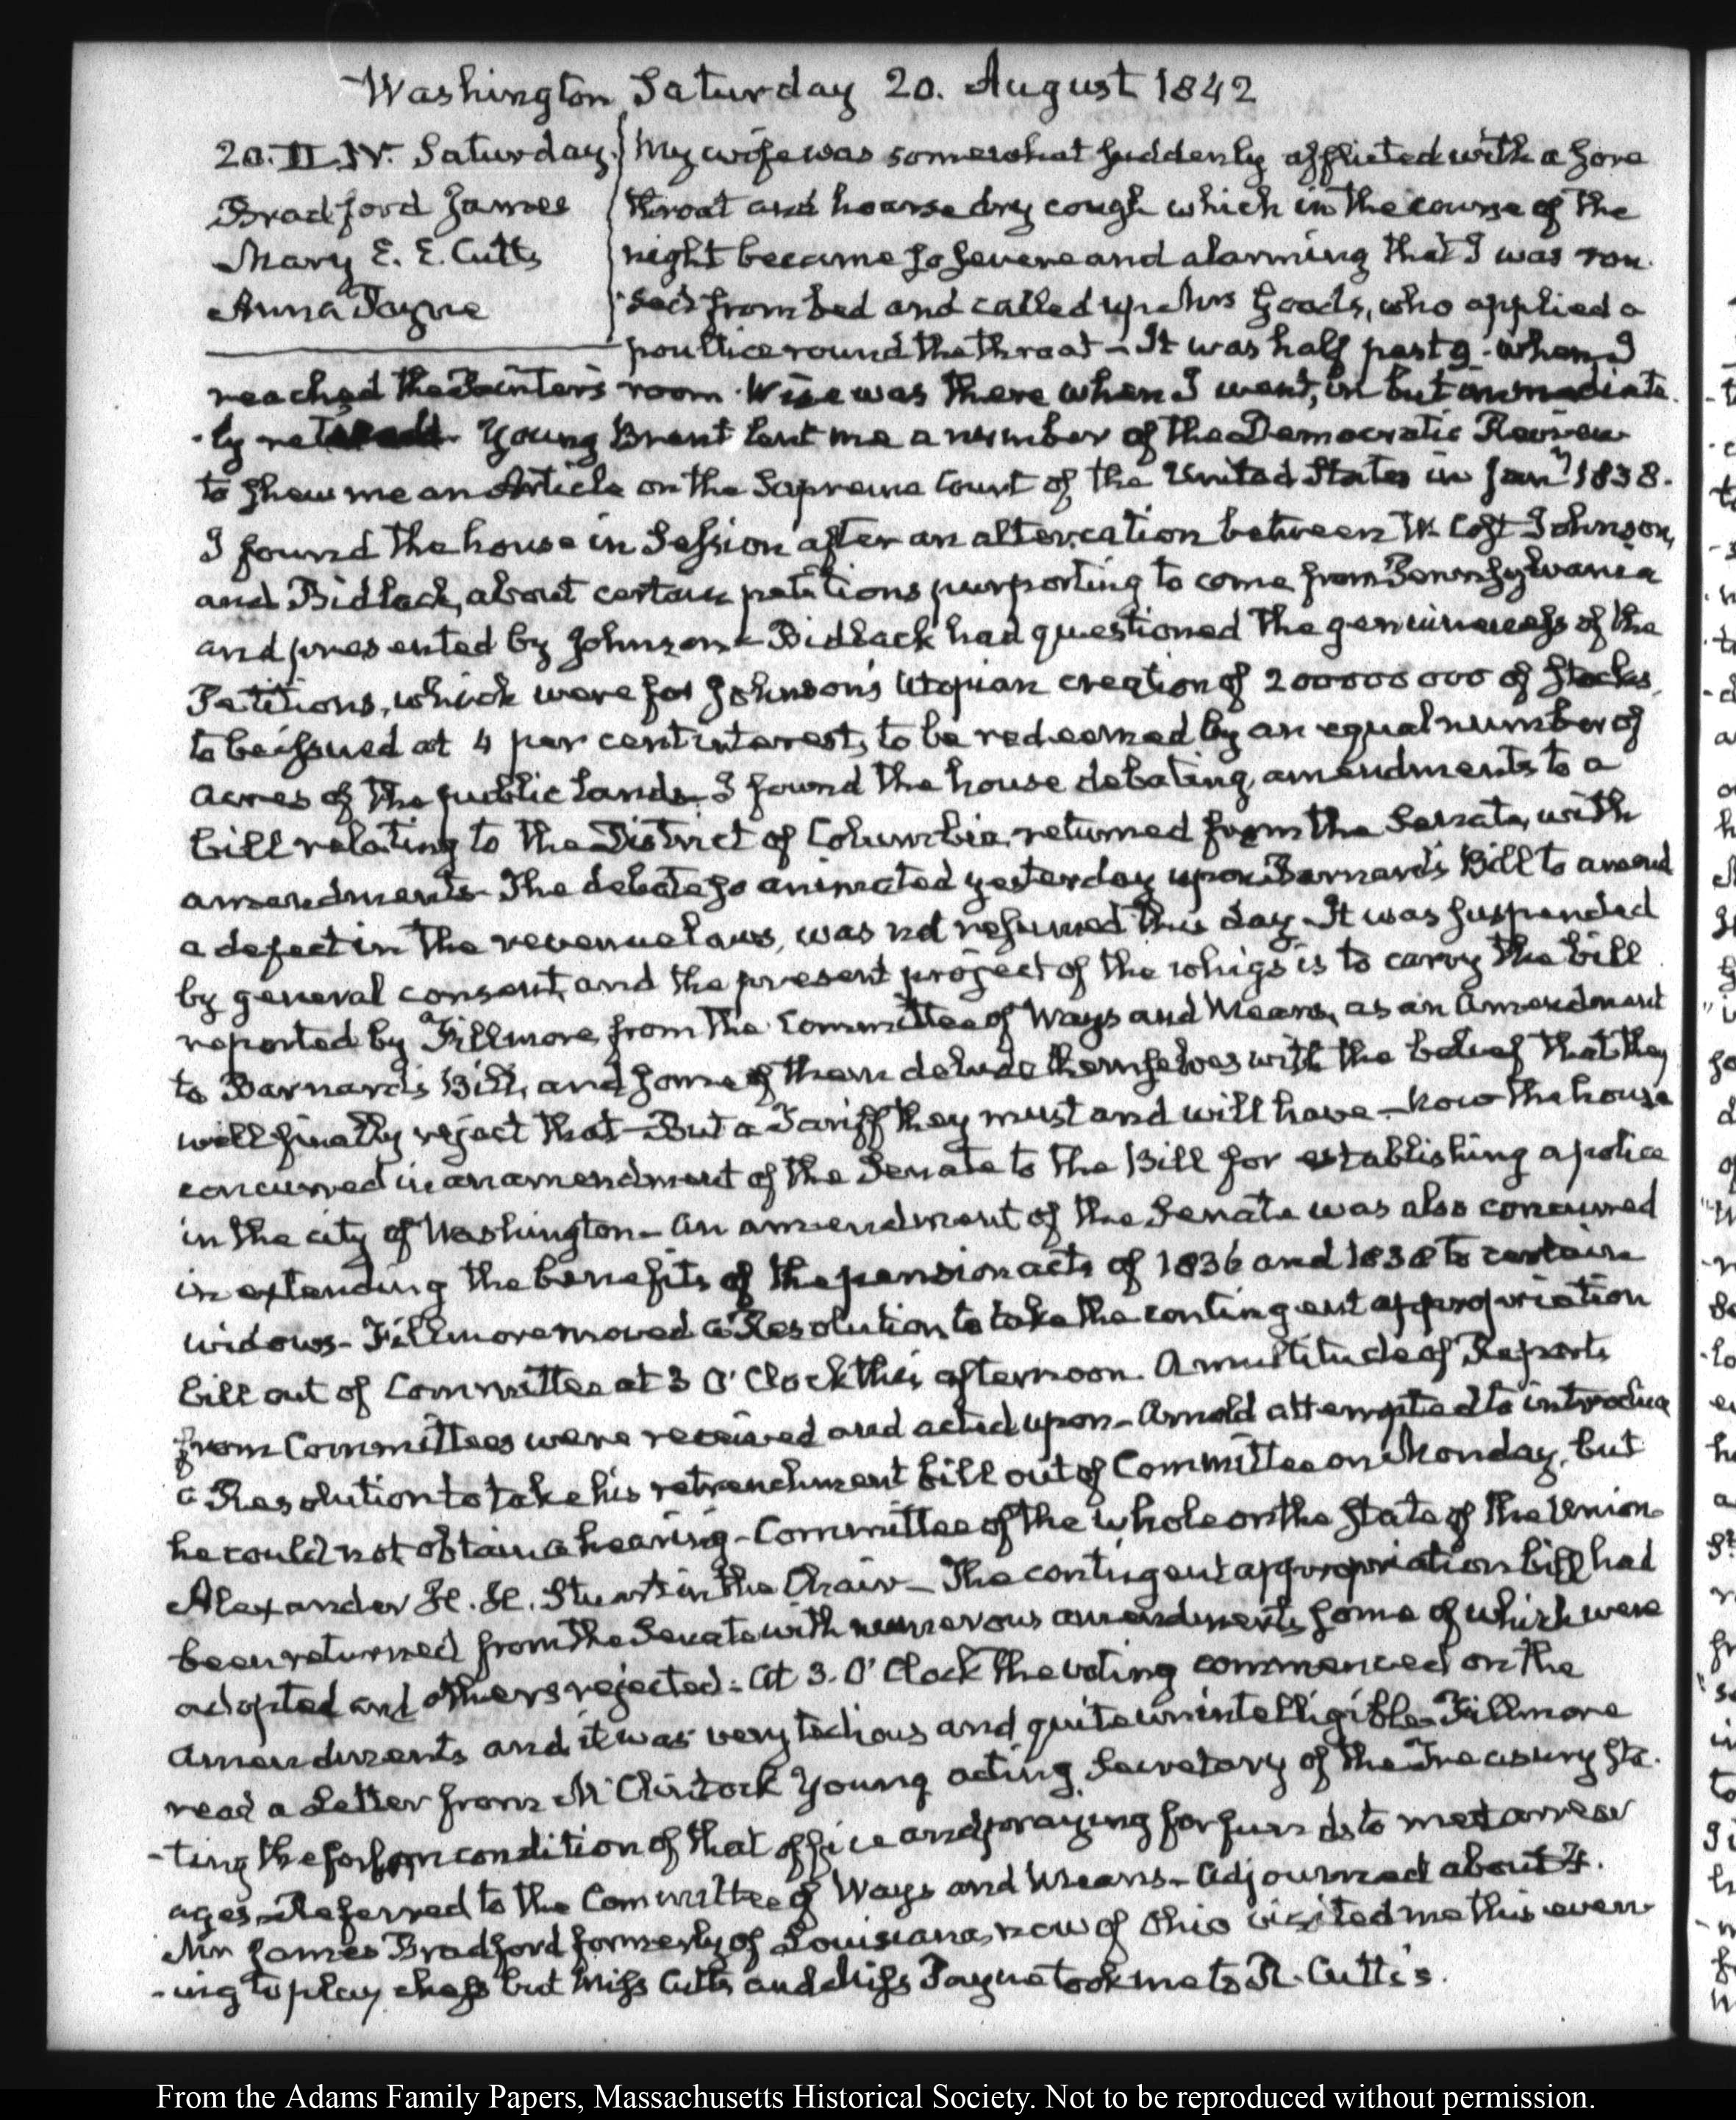 Washington Saturday 20. August 1842
20. II. IV. Saturday.
Bradford James
Mary E. E. Cutts
Anna Payne
My wife was somewhat suddenly afflicted with a sore
throat and hoarse dry cough which in the course of the
night became so severe and alarming that I was rou-
-sed from bed and called up Mrs Goods, who applied a
poultice round the throat – It was half past 9. when I
reached the Painter's room. Wise was there when I went, in but immediate-
-ly Young Brent lent me a number of the Democratic Review
to shew me an Article on the Supreme Court of the United States in Jany 1838.
I found the house in Session after an altercation between W. Cost Johnson,
and Bidlack, about certain petitions purporting to come from Pennsylvania
and presented by Johnson – Bidlack had questioned the genuineness of the
Petitions, which were for Johnson's Utopian creation of 200000000 of Stocks,
to be issued at 4 per cent interest, to be redeemed by an equal number of
acres of the public lands – I found the house debating, amendments to a
bill relating to the District of Columbia, returned from the Senate, with
amendments – The debate so animated yesterday upon Barnard's Bill to amend
a defect in the revenue laws, was not resumed this day – It was suspended
by general consent, and the present project of the whigs is to carry the bill
reported by Fillmore, from the Committee of Ways and Means, as an Amendment
to Barnard's Bill, and some of them delude themselves with the belief that they
will finally reject that – But a Tariff they must and will have – Now the house
concurred in an amendment of the Senate to the Bill for establishing a police
in the city of Washington – An amendment of the Senate was also concurred
in extending the benefits of the pension acts of 1836 and 1838 to certain
widows – Fillmore moved a Resolution to take the contingent appropriation
bill out of Committee at 3 O'Clock this afternoon. A multitude of Reports
from Committees were received and acted upon – Arnold attempted to introduce
a Resolution to take his retrenchment bill out of Committee on Monday, but
he could not obtain a hearing – Committee of the whole on the State of the Union
Alexander H. H. Stuart in the Chair – The contingent appropriation bill had
been returned from the Senate with numerous amendments some of which were
adopted and others rejected – At 3. O'Clock the voting commenced on the
amendments and it was very tedious and quite unintelligible – Fillmore
read a Letter from McClintock Young acting Secretary of the Treasury sta-
-ting the forlorn condition of that office and praying for funds to meet arrear
ages – Referred to the Committee of Ways and Means – Adjourned about 4.
Mr James Bradford formerly of Louisiana, now of Ohio visited me this even-
-ing to play chess but Miss Cutts and Miss Payne took me to R. Cutts's.
From the Adams Family Papers, Massachusetts Historical Society. Not to be reproduced without permission.